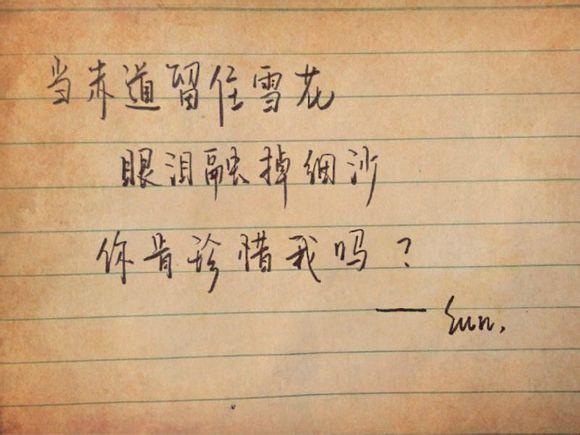 当赤道留住雪花
眼泪融掉细沙
你肯珍惜我吗？
— Sun.